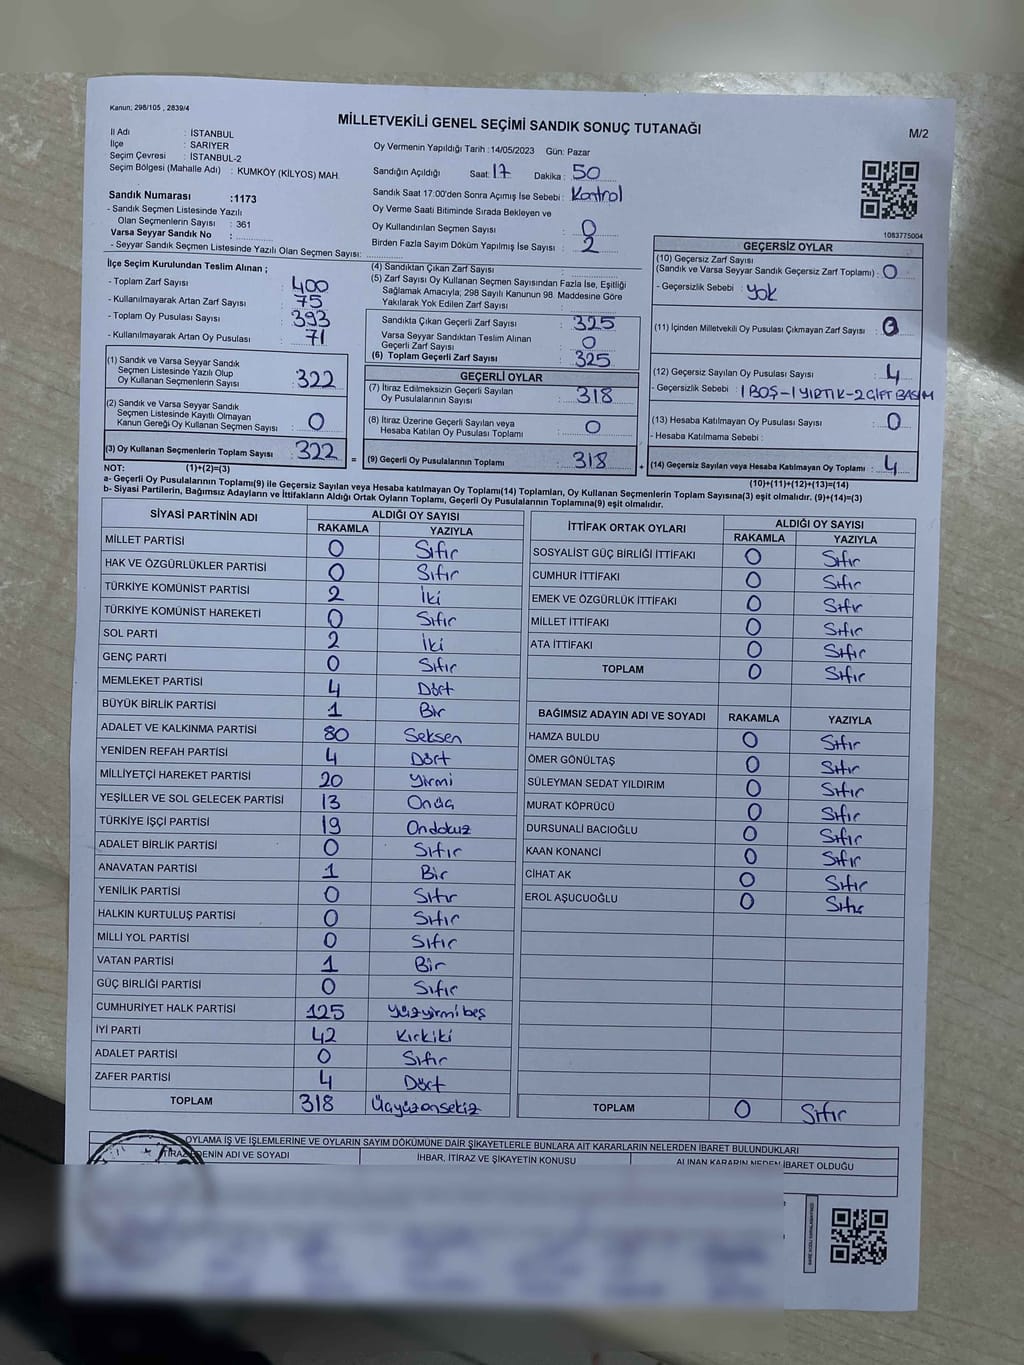 Kanun; 298/105 , 2839/4
MİLLETVEKİLİ GENEL SEÇİMİ SANDIK SONUÇ TUTANAĞI
M/2
İl Adı : İSTANBUL
İlçe : SARIYER
Seçim Çevresi : İSTANBUL-2
Seçim Bölgesi (Mahalle Adı) : KUMKÖY (KİLYOS) MAH.
Sandık Numarası :1173
- Sandık Seçmen Listesinde Yazılı
Olan Seçmenlerin Sayısı : 361
Varsa Seyyar Sandık No :
- Seyyar Sandık Seçmen Listesinde Yazılı Olan Seçmen Sayısı:
Oy Vermenin Yapıldığı Tarih :14/05/2023 Gün: Pazar
Sandığın Açıldığı Saat: 17 Dakika : 50
Sandık Saat 17:00'den Sonra Açımış İse Sebebi : Kontrol
Oy Verme Saati Bitiminde Sırada Bekleyen ve
Oy Kullandırılan Seçmen Sayısı : 0
Birden Fazla Sayım Döküm Yapılmış İse Sayısı : 2
1083775004
İlçe Seçim Kurulundan Teslim Alınan ;
- Toplam Zarf Sayısı : 400
- Kullanılmayarak Artan Zarf Sayısı : 75
- Toplam Oy Pusulası Sayısı : 393
- Kullanılmayarak Artan Oy Pusulası : 71
(1) Sandık ve Varsa Seyyar Sandık
Seçmen Listesinde Yazılı Olup
Oy Kullanan Seçmenlerin Sayısı : 322
(2) Sandık ve Varsa Seyyar Sandık
Seçmen Listesinde Kayıtlı Olmayan
Kanun Gereği Oy Kullanan Seçmen Sayısı : 0
(3) Oy Kullanan Seçmenlerin Toplam Sayısı : 322
(4) Sandıktan Çıkan Zarf Sayısı :
(5) Zarf Sayısı Oy Kullanan Seçmen Sayısından Fazla İse, Eşitliği
Sağlamak Amacıyla; 298 Sayılı Kanunun 98. Maddesine Göre
Yakılarak Yok Edilen Zarf Sayısı :
Sandıkta Çıkan Geçerli Zarf Sayısı : 325
Varsa Seyyar Sandıktan Teslim Alınan
Geçerli Zarf Sayısı : 0
(6) Toplam Geçerli Zarf Sayısı : 325
GEÇERLİ OYLAR
(7) İtiraz Edilmeksizin Geçerli Sayılan
Oy Pusulalarının Sayısı : 318
(8) İtiraz Üzerine Geçerli Sayılan veya
Hesaba Katılan Oy Pusulası Toplamı : 0
= (9) Geçerli Oy Pusulalarının Toplamı : 318 +
GEÇERSİZ OYLAR
(10) Geçersiz Zarf Sayısı
(Sandık ve Varsa Seyyar Sandık Geçersiz Zarf Toplamı) : 0
- Geçersizlik Sebebi : yok
(11) İçinden Milletvekili Oy Pusulası Çıkmayan Zarf Sayısı : 0
(12) Geçersiz Sayılan Oy Pusulası Sayısı : 4
- Geçersizlik Sebebi : 1 BOŞ-1 YIRTIK-2 ÇİFT BASIM
(13) Hesaba Katılmayan Oy Pusulası Sayısı : 0
- Hesaba Katılmama Sebebi :
(14) Geçersiz Sayılan veya Hesaba Katılmayan Oy Toplamı : 4
NOT: (1)+(2)=(3)
(10)+(11)+(12)+(13)=(14)
a- Geçerli Oy Pusulalarının Toplamı(9) ile Geçersiz Sayılan veya Hesaba Katılmayan Oy Pusulası Toplamı(14) Toplamları, Oy Kullanan Seçmenlerin Toplam Sayısına(3) eşit olmalıdır. (9)+(14)=(3)
b- Siyasi Partilerin, Bağımsız Adayların ve İttifakların Aldığı Ortak Oyların Toplamı, Geçerli Oy Pusulalarının Toplamına(9) eşit olmalıdır.
SİYASİ PARTİNİN ADI ALDIĞI OY SAYISI
RAKAMLA YAZIYLA
MİLLET PARTİSİ 0 Sıfır
HAK VE ÖZGÜRLÜKLER PARTİSİ 0 Sıfır
TÜRKİYE KOMÜNİST PARTİSİ 2 İki
TÜRKİYE KOMÜNİST HAREKETİ 0 Sıfır
SOL PARTİ 2 İki
GENÇ PARTİ 0 Sıfır
MEMLEKET PARTİSİ 4 Dört
BÜYÜK BİRLİK PARTİSİ 1 Bir
ADALET VE KALKINMA PARTİSİ 80 Seksen
YENİDEN REFAH PARTİSİ 4 Dört
MİLLİYETÇİ HAREKET PARTİSİ 20 Yirmi
YEŞİLLER VE SOL GELECEK PARTİSİ 13 Onüç
TÜRKİYE İŞÇİ PARTİSİ 19 Ondokuz
ADALET BİRLİK PARTİSİ 0 Sıfır
ANAVATAN PARTİSİ 1 Bir
YENİLİK PARTİSİ 0 Sıfır
HALKIN KURTULUŞ PARTİSİ 0 Sıfır
MİLLİ YOL PARTİSİ 0 Sıfır
VATAN PARTİSİ 1 Bir
GÜÇ BİRLİĞİ PARTİSİ 0 Sıfır
CUMHURİYET HALK PARTİSİ 125 Yüzyirmibeş
İYİ PARTİ 42 Kırkiki
ADALET PARTİSİ 0 Sıfır
ZAFER PARTİSİ 4 Dört
TOPLAM 318 Üçyüzonsekiz
İTTİFAK ORTAK OYLARI ALDIĞI OY SAYISI
RAKAMLA YAZIYLA
SOSYALİST GÜÇ BİRLİĞİ İTTİFAKI 0 Sıfır
CUMHUR İTTİFAKI 0 Sıfır
EMEK VE ÖZGÜRLÜK İTTİFAKI 0 Sıfır
MİLLET İTTİFAKI 0 Sıfır
ATA İTTİFAKI 0 Sıfır
TOPLAM 0 Sıfır
BAĞIMSIZ ADAYIN ADI VE SOYADI RAKAMLA YAZIYLA
HAMZA BULDU 0 Sıfır
ÖMER GÖNÜLTAŞ 0 Sıfır
SÜLEYMAN SEDAT YILDIRIM 0 Sıfır
MURAT KÖPRÜCÜ 0 Sıfır
DURSUNALİ BACIOĞLU 0 Sıfır
KAAN KONANCİ 0 Sıfır
CİHAT AK 0 Sıfır
EROL AŞUCUOĞLU 0 Sıfır
TOPLAM 0 Sıfır
OYLAMA İŞ VE İŞLEMLERİNE VE OYLARIN SAYIM DÖKÜMÜNE DAİR ŞİKAYETLERLE BUNLARA AİT KARARLARIN NELERDEN İBARET BULUNDUKLARI
İTİRAZ EDENİN ADI VE SOYADI İHBAR, İTİRAZ VE ŞİKAYETİN KONUSU ALINAN KARARIN NEDEN İBARET OLDUĞU